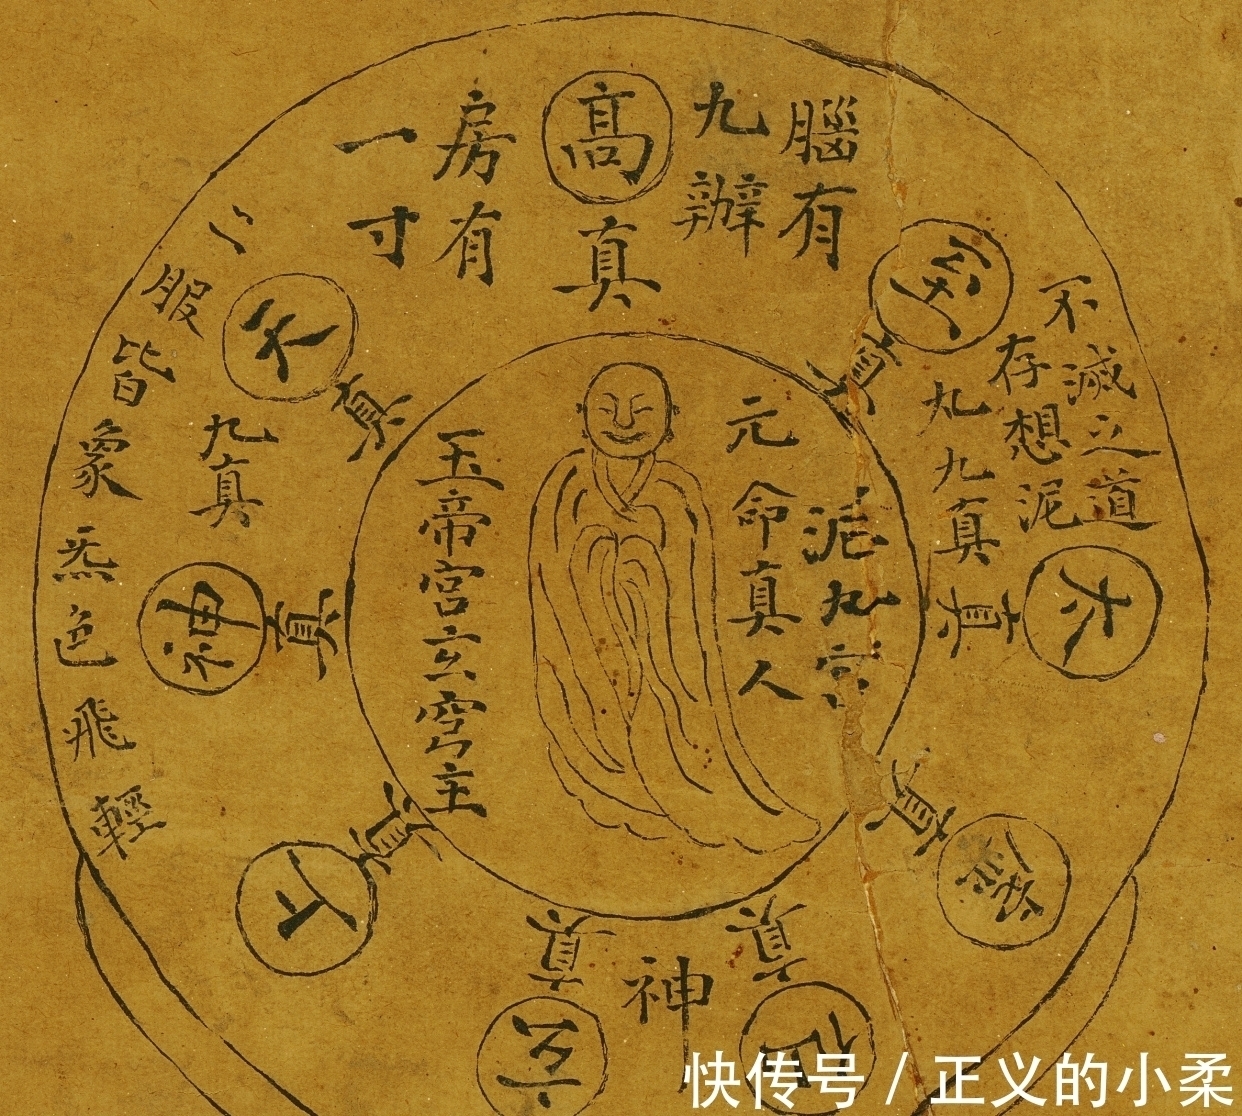 腦有
九辦
高
真
房有
一寸
不滅之道
存想泥
丸九真
太
真
至
真
靈
真
仙
真
神
玄
真
上
真
神
真
天
真
九真
二服皆象炁色飛輕
泥丸宮
元命真人
玉帝宮玄穹主
快传号 / 正义的小柔